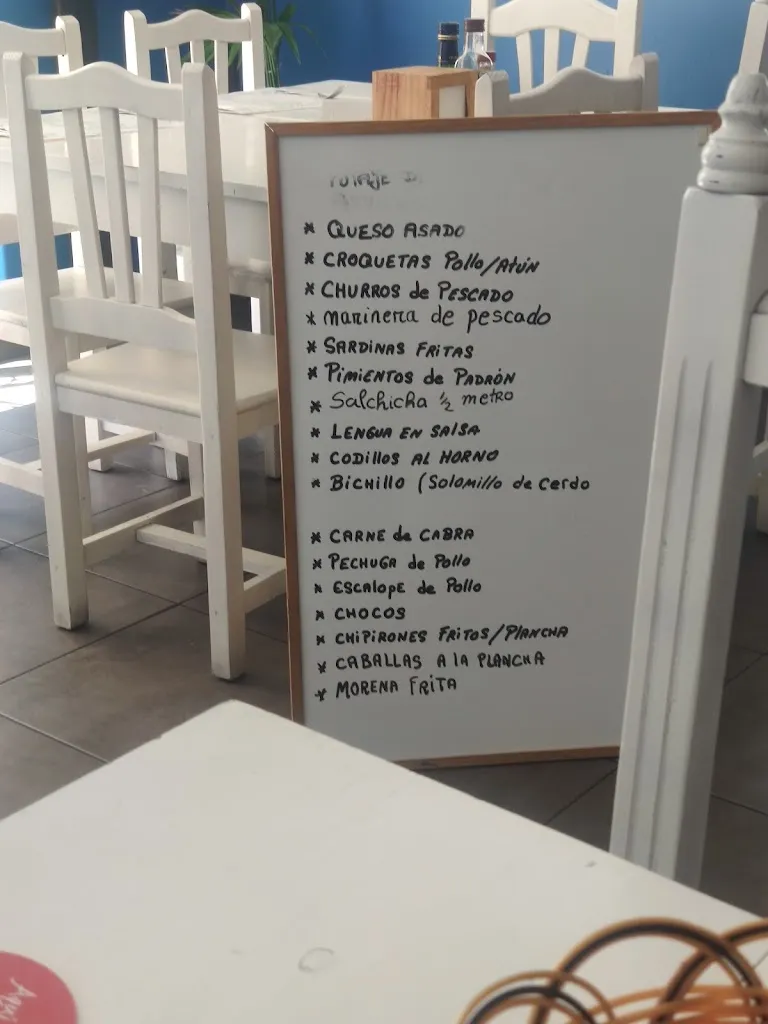 POTAJE DE
* QUESO ASADO
* CROQUETAS Pollo/Atún
* CHURROS de PESCADO
* marinera de pescado
* SARDINAS FRITAS
* PIMIENTOS de PADRÓN
* Salchicha ½ metro
* LENGUA EN SALSA
* CODILLOS AL HORNO
* BICHILLO (Solomillo de Cerdo
* CARNE de CABRA
* PECHUGA de Pollo
* ESCALOPE de Pollo
* CHOCOS
* CHIPIRONES FRITOS/PLANCHA
* CABALLAS A la PLANCHA
* MORENA FRITA